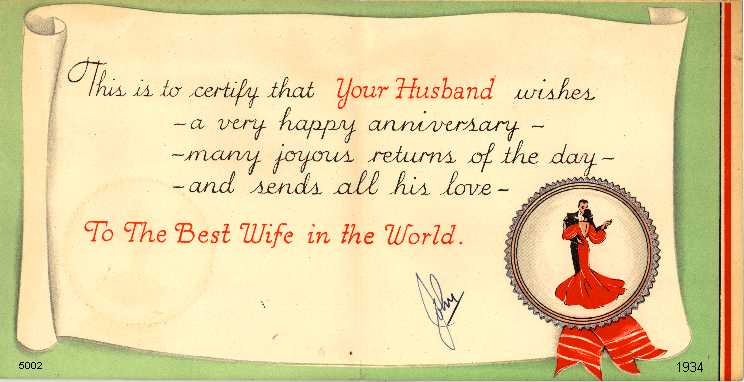 This is to certify that Your Husband wishes
- a very happy anniversary -
- many joyous returns of the day -
- and sends all his love -
To The Best Wife in the World.
John
5002
1934